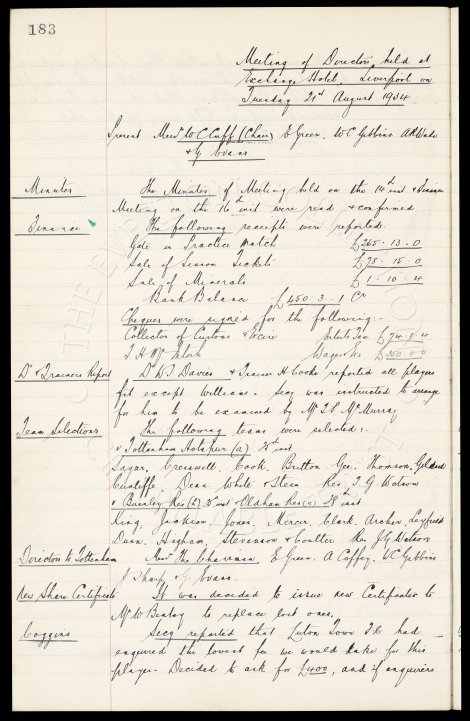 183
Meeting of Directors held at
Exchange Hotel, Liverpool on
Tuesday 21st August 1934
Present Messrs W C Cuff (Chair) E Green. W C Gibbins A R Wade
& G Evans
Minutes The Minutes of Meeting held on the 14th inst & Finance
Meeting on the 16th inst were read & confirmed
Finance The following receipts were reported.
Gate in Practice Match £265 . 13 . 0
Sale of Season Tickets £75 . 15 . 0
Sale of Minerals £1 . 10 . 4
Bank Balance £450 . 3 . 1 Cr
Cheques were signed for the following:-
Collector of Customs & Excise Ents Tax £74 . 1 . 4
T H McIntosh Wages &c £350 0 0
Dr & Trainers Report Dr D J Davies & Trainer H Cooke reported all players
fit except Williams. Secy was instructed to arrange
for him to be examined by Mr T P McMurray
Team Selections The following teams were selected:-
v Tottenham Hotspur (a) 25th inst
Sagar. Cresswell. Cook. Britton Gee. Thomson. Geldard
Cunliffe. Dean. White & Stein Res. T. G Watson
v Burnley Res (h) 25 inst & Oldham Res (a) 28th inst
King, Jackson. Jones, Mercer, Clark. Archer. Leyfield
Dunn. Higham, Stevenson & Coulter Res J G Watson
Directors to Tottenham Messrs The Chairman E Green. A Coffey. W C Gibbins
J Sharp & G Evans.
New Share Certificate It was decided to issue new Certificates to
Mr W to replace lost ones.
Coggins Secy reported that Luton Town F.C had
enquired the lowest fee we would take for this
player. Decided to ask for £400, and if enquirers